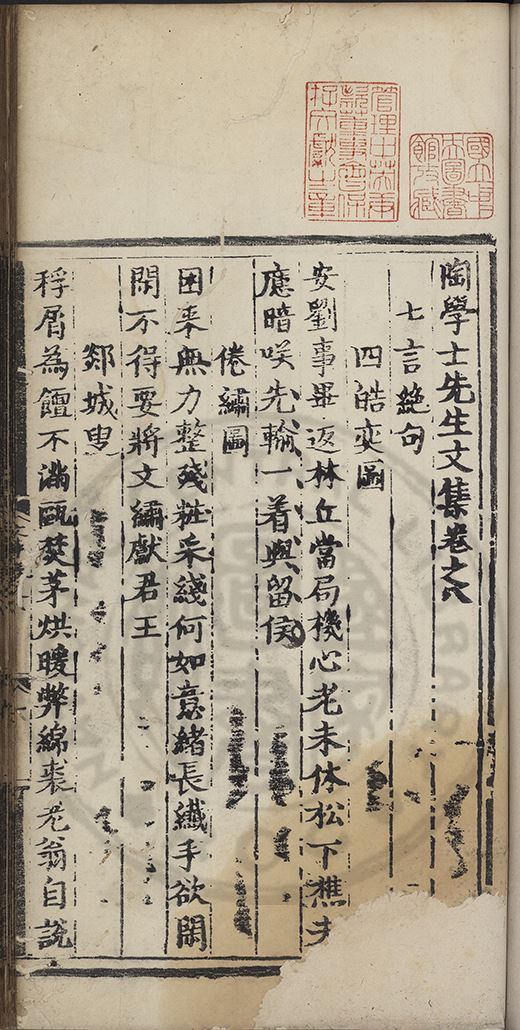 陶學士先生文集卷之八
七言絶句
四皓奕圖
安劉事畢返林丘當局機心老未休松下樵夫
應暗咲先輸一着與留侯
倦繡圖
困来無力整殘粧采綫何如意緒長纖手欲閑
閑不得要將文繡獻君王
郯城叟
稃屑為饘不滿甌焚茅烘暖弊綿裘老翁自說
國立中
央圖書
館收藏
管理中英庚
款董事會保
存文獻之章